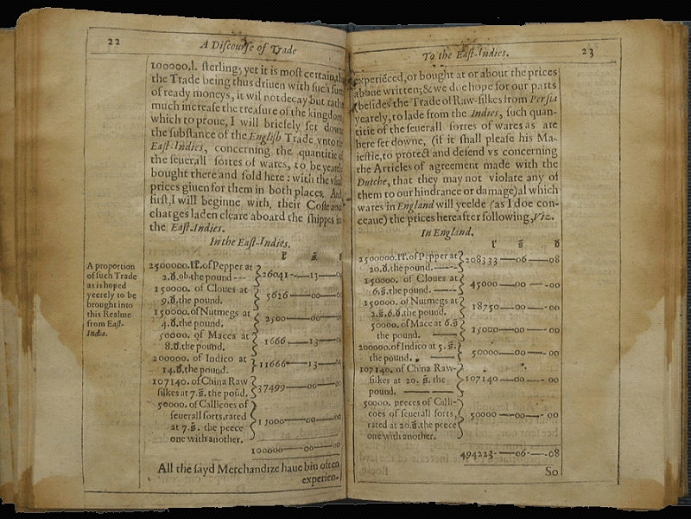 22
A Discourse of Trade
100000.l. sterling; yet it is most certain, that
the Trade being thus driuen with such sum
of ready moneys, it wil not decay but rath
much increase the treasure of the kingdom
which to proue, I will briefely set down
the substance of the English Trade vnto the
East-Indies, concerning the quantitie of
the seuerall sortes of wares, to be yearely
bought there and sold here: with the vsual
prices giuen for them in both places. And
first, I will beginne with, their Coste and
charges laden cleare aboard the shippes in
the East-Indies.
In the East-Indies.
l̃ s̃ d̃
A proportion
of such Trade
as is hoped
yeerely to be
brought into
this Realme
from East-
India.
2500000. l̃. of Pepper at
2.d̃. ob. the pound---- 26041—13—0
150000. of Cloues at
9.d̃. the pound. 5626—00—0
150000. of Nutmegs at
4.d̃. the pound. 2500—00—0
50000. of Maces at
8.d̃. the pound. 1666—13—
200000. of Indico at
14.d̃. the pound. 11666—13—
107140. of China Raw
silkes at 7.s̃. the poũd. 37499—00—
50000. of Callicoes of
seuerall sorts, rated
at 7.s̃. the peece
one with another. 15000—00—
100000—00—00
All the sayd Merchandize haue bin often
experien-
To the East-Indies.
23
experiẽced, or bought at or about the prices
aboue written; & we doe hope for our parts
(besides the Trade of Raw-silkes from Persia
yearely, to lade from the Indies, such quan-
titie of the seuerall sortes of wares as are
here set downe, (if it shall please his Ma-
iestie, to protect and defend vs concerning
the Articles of agreement made with the
Dutche, that they may not violate any of
them to our hindrance or damage) al which
wares in England will yeelde (as I doe con-
ceaue) the prices hereafter following, Viz.
In England.
l̃ s̃ d̃
2500000. l̃. of Pepper at
20.d̃. the pound.---- 208333—06—08
150000. of Cloues at
6.s̃. the pound.—— 45000—00—00
150000. of Nutmegs at
2.s̃. 6.d̃. the pound. 18750—00—00
50000. of Mace at 6.s̃
the pound. —— 15000—00—00
200000. of Indico at 5.s̃.
the pound. —— 50000—00—00
107140. of China Raw-
silkes at 20. s̃. the
pound. —— 107140—00—00
50000. peeces of Calli-
coes of seuerall sorts,
rated at 20.s̃. the peece
one with another. 50000—00—00
494223—06—08
So